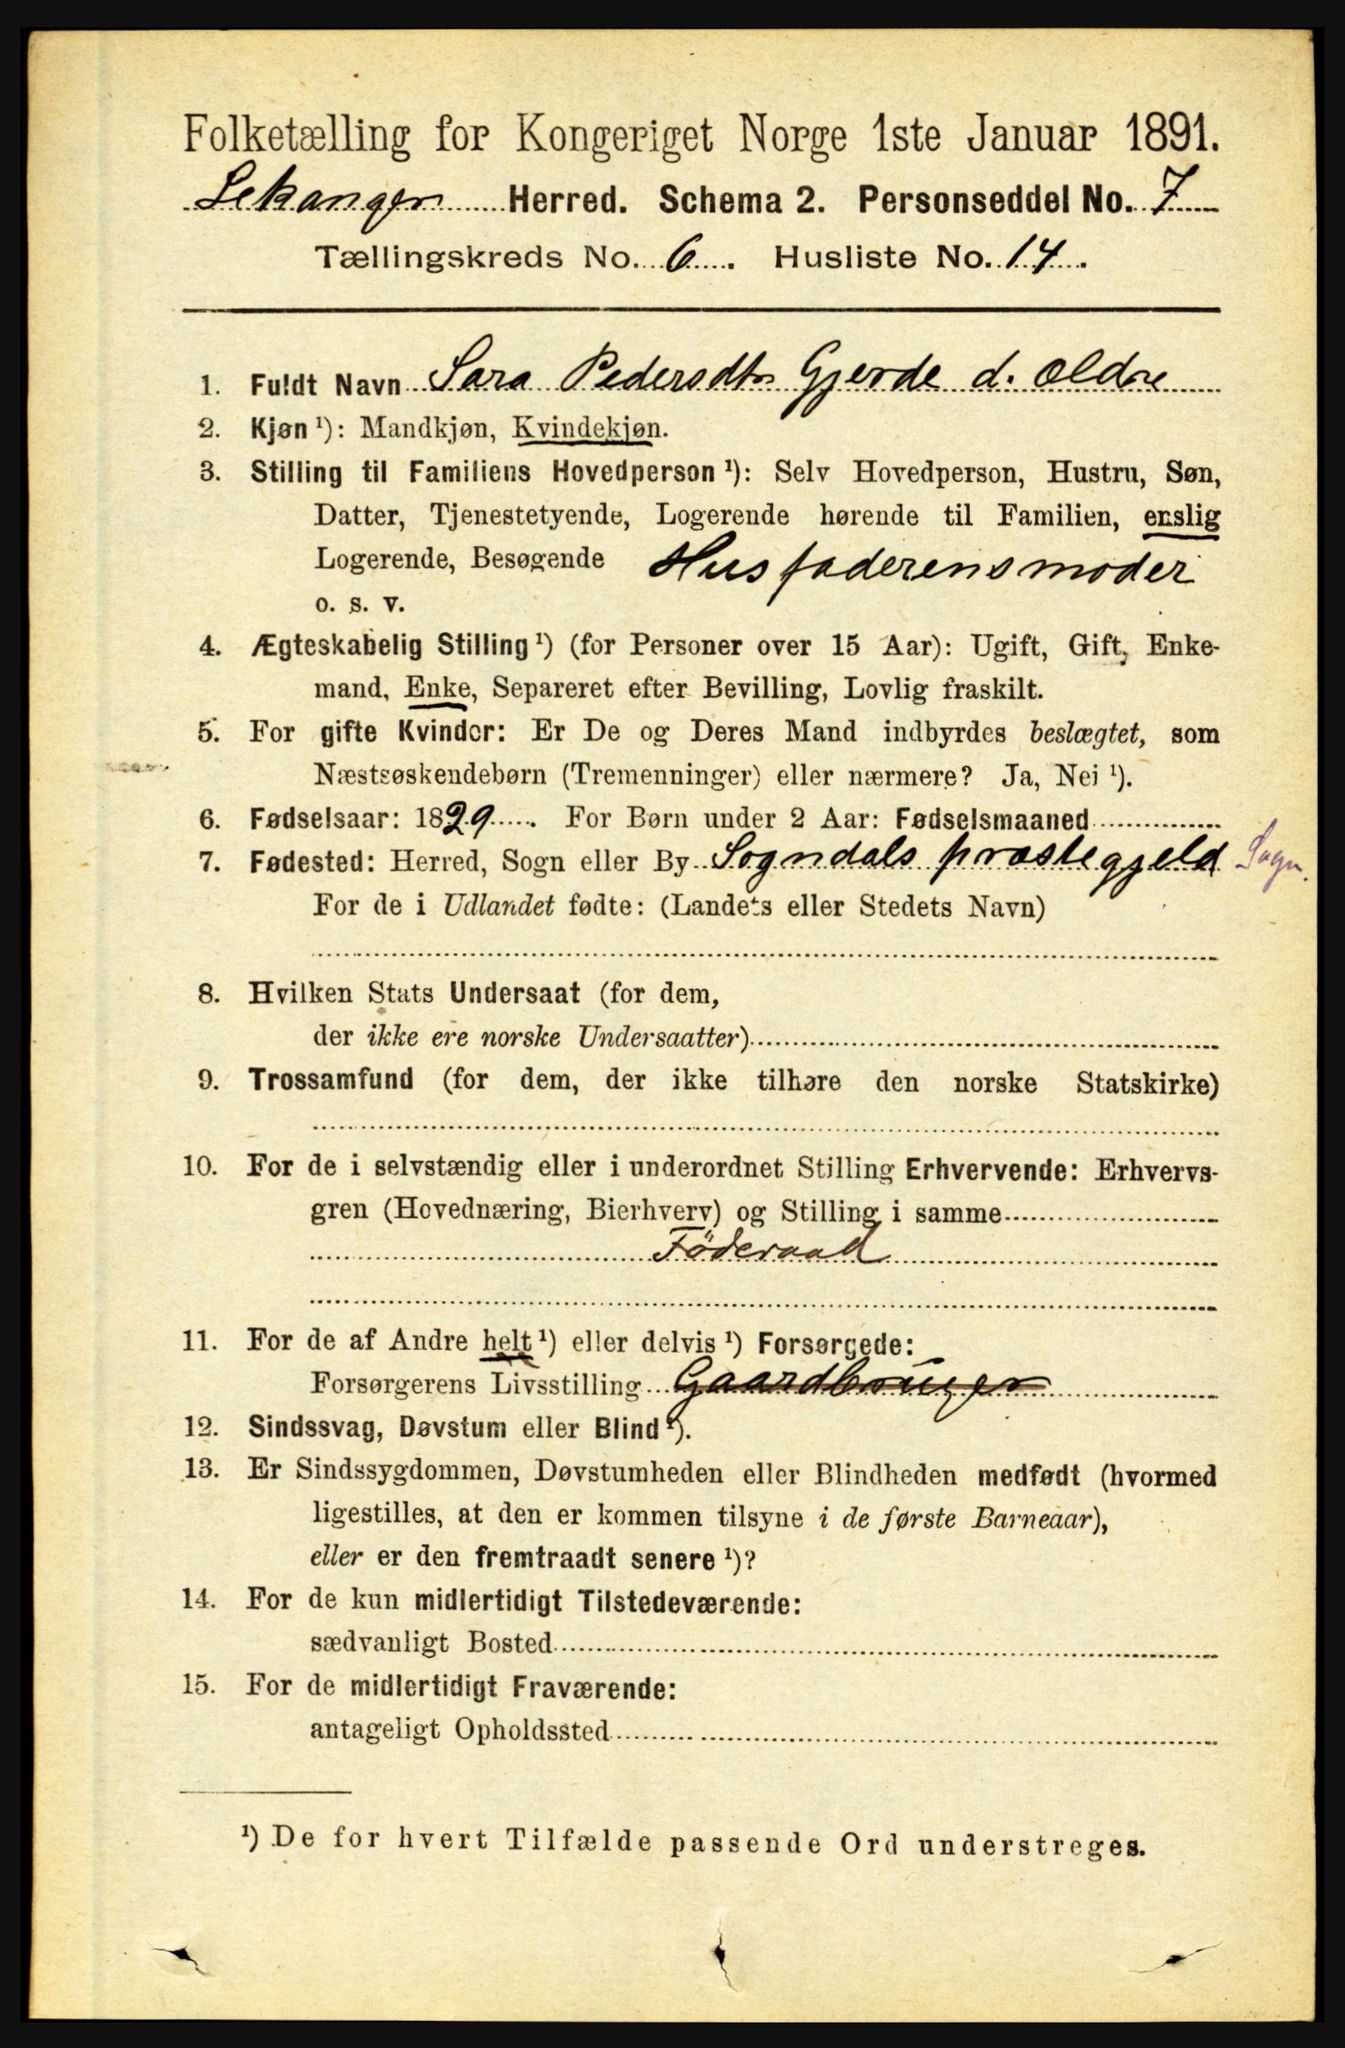 Folketælling for Kongeriget Norge 1ste Januar 1891.
Lekanger Herred. Schema 2. Personseddel No. 7
Tællingskreds No. 6. Husliste No. 14.
1. Fuldt Navn Sara Pedersdtr Gjerde d. ældre
2. Kjøn ¹): Mandkjøn, Kvindekjøn.
3. Stilling til Familiens Hovedperson ¹): Selv Hovedperson, Hustru, Søn,
Datter, Tjenestetyende, Logerende hørende til Familien, enslig
Logerende, Besøgende Husfaderens moder
o. s. v.
4. Ægteskabelig Stilling ¹) (for Personer over 15 Aar): Ugift, Gift, Enke-
mand, Enke, Separeret efter Bevilling, Lovlig fraskilt.
5. For gifte Kvinder: Er De og Deres Mand indbyrdes beslægtet, som
Næstsøskendebørn (Tremenninger) eller nærmere? Ja, Nei ¹).
6. Fødselsaar: 1829. For Børn under 2 Aar: Fødselsmaaned
7. Fødested: Herred, Sogn eller By Sogndals præstegjeld Sogn.
For de i Udlandet fødte: (Landets eller Stedets Navn)
8. Hvilken Stats Undersaat (for dem,
der ikke ere norske Undersaatter)
9. Trossamfund (for dem, der ikke tilhøre den norske Statskirke)
10. For de i selvstændig eller i underordnet Stilling Erhvervende: Erhvervs-
gren (Hovednæring, Bierhverv) og Stilling i samme
Föderaad
11. For de af Andre helt ¹) eller delvis ¹) Forsørgede:
Forsørgerens Livsstilling Gaardbruger
12. Sindssvag, Døvstum eller Blind ¹).
13. Er Sindssygdommen, Døvstumheden eller Blindheden medfødt (hvormed
ligestilles, at den er kommen tilsyne i de første Barneaar),
eller er den fremtraadt senere ¹)?
14. For de kun midlertidigt Tilstedeværende:
sædvanligt Bosted
15. For de midlertidigt Fraværende:
antageligt Opholdssted
¹) De for hvert Tilfælde passende Ord understreges.